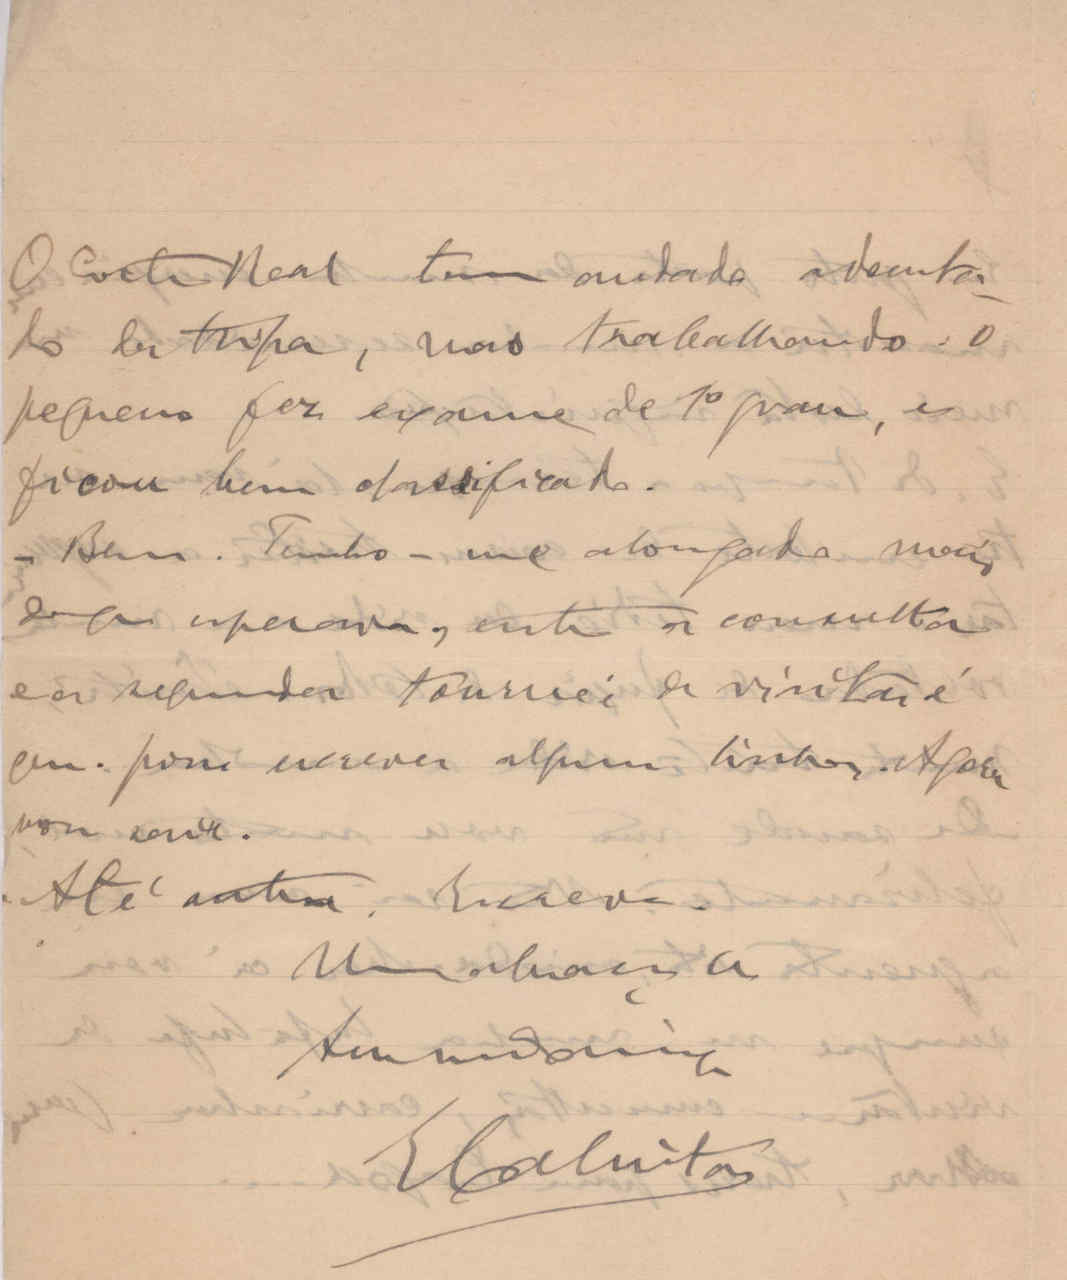 O Corte Real tem andado adoenta-
do da tripa, mas trabalhando. O
pequeno fez exame de 1º grau, e
ficou bem classificado.
- Bem. Tenho-me alongado mais
do que esperava, entre a consulta
e a segunda tournei de visitas é
que posso escrever algumas linhas. Agora
vou sair.
Até outra. Escreva.
Um abraço de
seu amigo